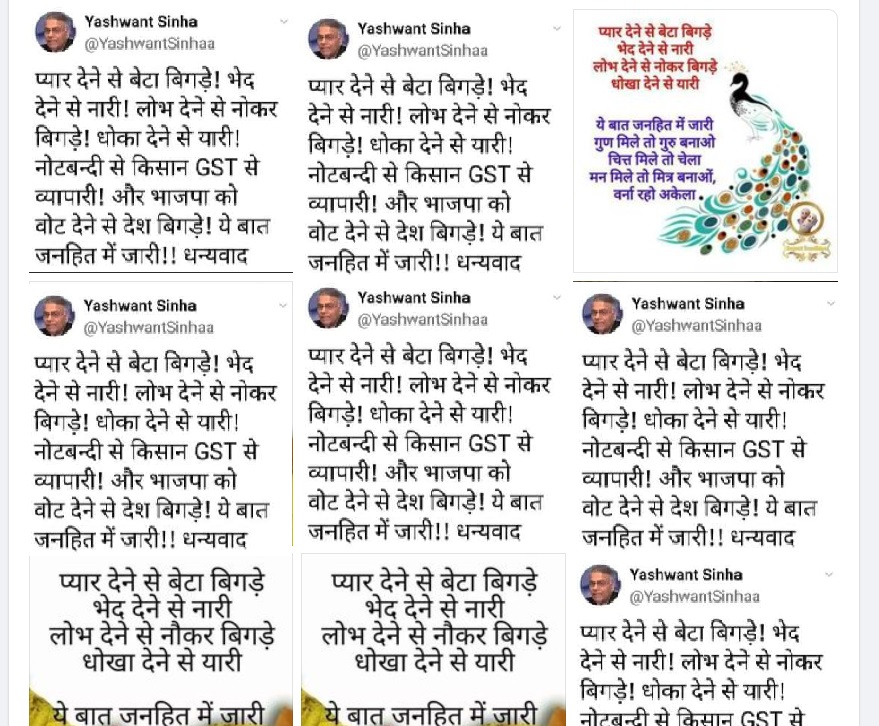 Yashwant Sinha
@YashwantSinhaa
प्यार देने से बेटा बिगड़े! भेद
देने से नारी! लोभ देने से नोकर
बिगड़े! धोका देने से यारी!
नोटबन्दी से किसान GST से
व्यापारी! और भाजपा को
वोट देने से देश बिगड़े! ये बात
जनहित में जारी!! धन्यवाद
Yashwant Sinha
@YashwantSinhaa
प्यार देने से बेटा बिगड़े! भेद
देने से नारी! लोभ देने से नोकर
बिगड़े! धोका देने से यारी!
नोटबन्दी से किसान GST से
व्यापारी! और भाजपा को
वोट देने से देश बिगड़े! ये बात
जनहित में जारी!! धन्यवाद
प्यार देने से बेटा बिगड़े
भेद देने से नारी
लोभ देने से नोकर बिगड़े
धोखा देने से यारी
ये बात जनहित में जारी
गुण मिले तो गुरु बनाओ
चित्त मिले तो चेला
मन मिले तो मित्र बनाओं,
वर्ना रहो अकेला.
Yashwant Sinha
@YashwantSinhaa
प्यार देने से बेटा बिगड़े! भेद
देने से नारी! लोभ देने से नोकर
बिगड़े! धोका देने से यारी!
नोटबन्दी से किसान GST से
व्यापारी! और भाजपा को
वोट देने से देश बिगड़े! ये बात
जनहित में जारी!! धन्यवाद
Yashwant Sinha
@YashwantSinhaa
प्यार देने से बेटा बिगड़े! भेद
देने से नारी! लोभ देने से नोकर
बिगड़े! धोका देने से यारी!
नोटबन्दी से किसान GST से
व्यापारी! और भाजपा को
वोट देने से देश बिगड़े! ये बात
जनहित में जारी!! धन्यवाद
Yashwant Sinha
@YashwantSinhaa
प्यार देने से बेटा बिगड़े! भेद
देने से नारी! लोभ देने से नोकर
बिगड़े! धोका देने से यारी!
नोटबन्दी से किसान GST से
व्यापारी! और भाजपा को
वोट देने से देश बिगड़े! ये बात
जनहित में जारी!! धन्यवाद
प्यार देने से बेटा बिगड़े
भेद देने से नारी
लोभ देने से नौकर बिगड़े
धोखा देने से यारी
ये बात जनहित में जारी
प्यार देने से बेटा बिगड़े
भेद देने से नारी
लोभ देने से नौकर बिगड़े
धोखा देने से यारी
ये बात जनहित में जारी
Yashwant Sinha
@YashwantSinhaa
प्यार देने से बेटा बिगड़े! भेद
देने से नारी! लोभ देने से नोकर
बिगड़े! धोका देने से यारी!
नोटबन्दी से किसान GST से